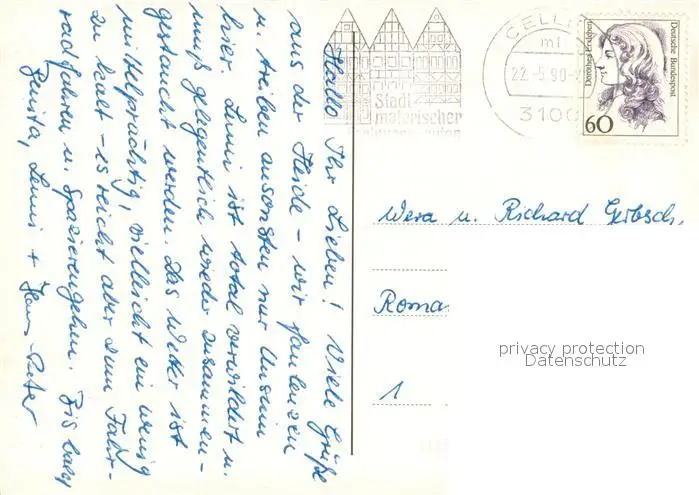 Hallo Ihr Lieben! Viele Grüße
aus der Heide – wir faulenzen
u. treiben ansonsten nur Unsinn
hier. Lenni ist total verwildert u.
muß gelegentlich wieder zusammen-
gestaucht werden. Das Wetter ist
mittelprächtig, vielleicht ein wenig
zu kalt – es reicht aber zum Fahr-
radfahren u. Spazierengehen. Bis bald
Lenni + Hans-Peter
Stadt
malerischer
CELLE
mt
22.-5.90-
3100
Deutsche Bundespost
Dorothea Erxleben
60
Wera u. Richard Gerbsch,
Roma
1
privacy protection
Datenschutz